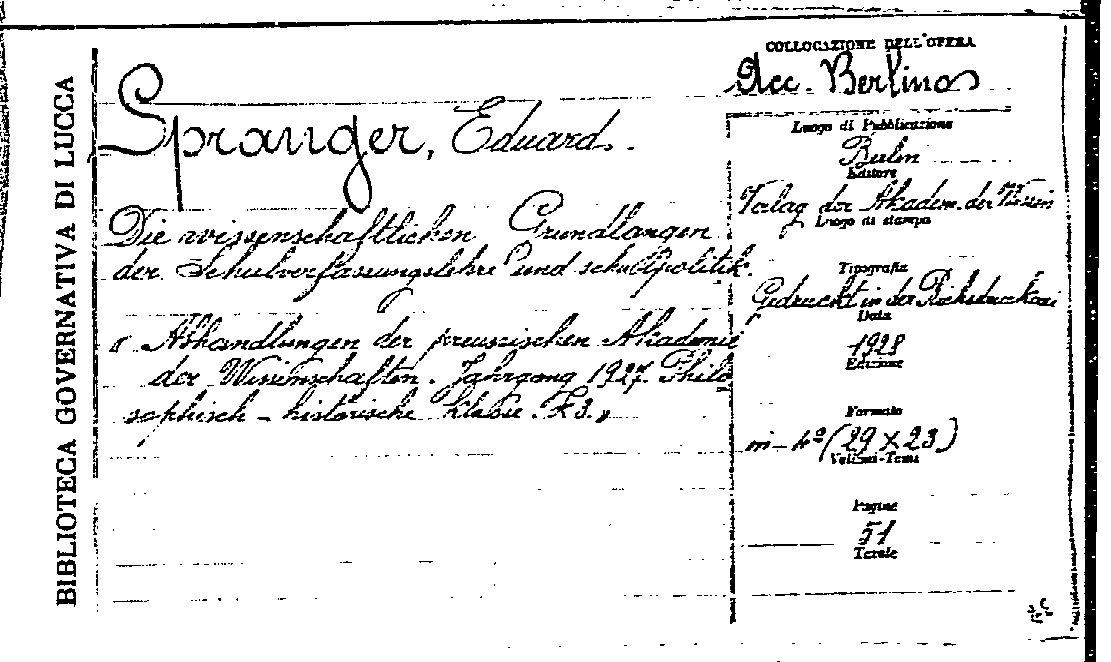 BIBLIOTECA GOVERNATIVA DI LUCCA
Spranger, Eduard.
Die wissenschaftlichen Grundlangen
der Schulverfassungslehre und schulpolitik.
" Abhandlungen der preussischen Akademie
der Wissenschaften. Jahrgang 1927. Philo
sophisch - historische Klasse.
COLLOCAZIONE DELL'OPERA
Acc. Berlino
Luogo di Pubblicazione
Berlin
Editore
Verlag der Akadem. der Wissen
Luogo di stampa
Tipografia
Gedruckt in der Reichsdruckerei
Data
1928
Edizione
Formato
in-4º (29 X 23)
Volumi-Tomi
Pagine
51
Totale